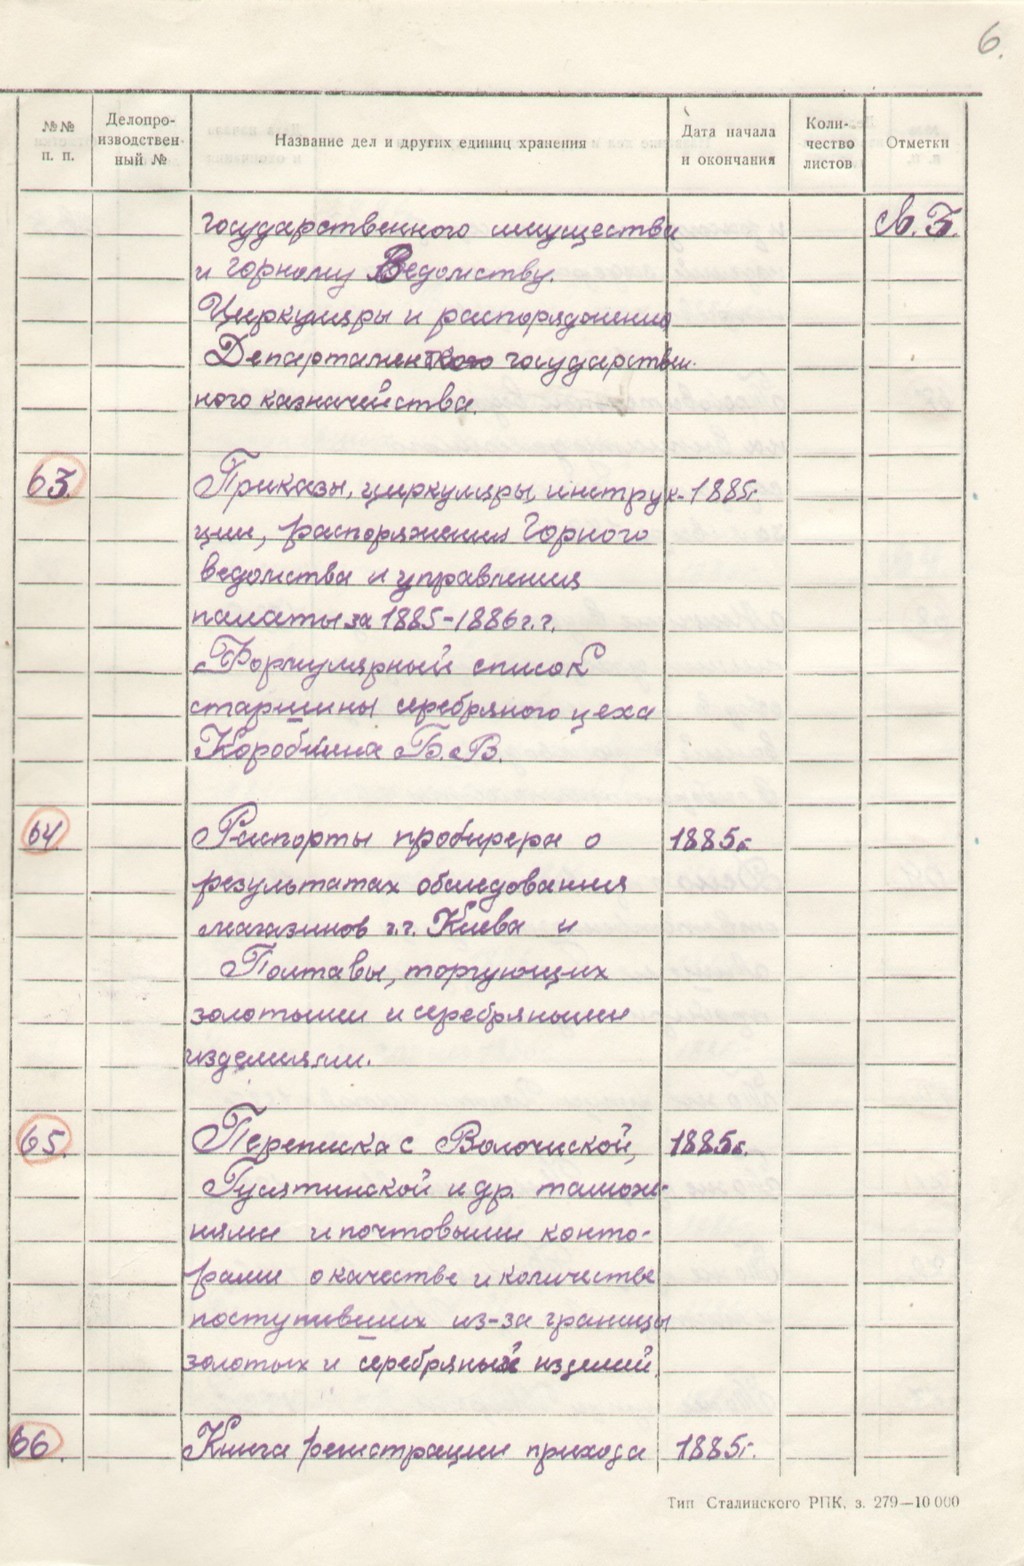 6.
№№ п. п.
Делопро-изводствен-ный №
Название дел и других единиц хранения
Дата начала и окончания
Коли-чество листов
Отметки
государственного имущества
и горному Ведомству.
Циркуляры и распоряжения
Департамента государствен-
ного казначейства.
63. Приказы, циркуляры, инструк- 1885г.
ции, распоряжения Горного
ведомства и управления
палаты за 1885-1886 г.г.
Формулярный список
старшины серебряного цеха
Коробкина Б.В.
64. Рапорты пробирера о 1885г.
результатах обследования
магазинов г.г. Киева и
Полтавы, торгующих
золотыми и серебряными
изделиями.
65. Переписка с Волочиской, 1885г.
Гусятинской и др. таможе-
нями и почтовыми конто-
рами о качестве и количестве
поступивших из-за границы
золотых и серебряных изделий.
66. Книга регистрации прихода 1885г.
Тип Сталинского РПК, з. 279—10 000